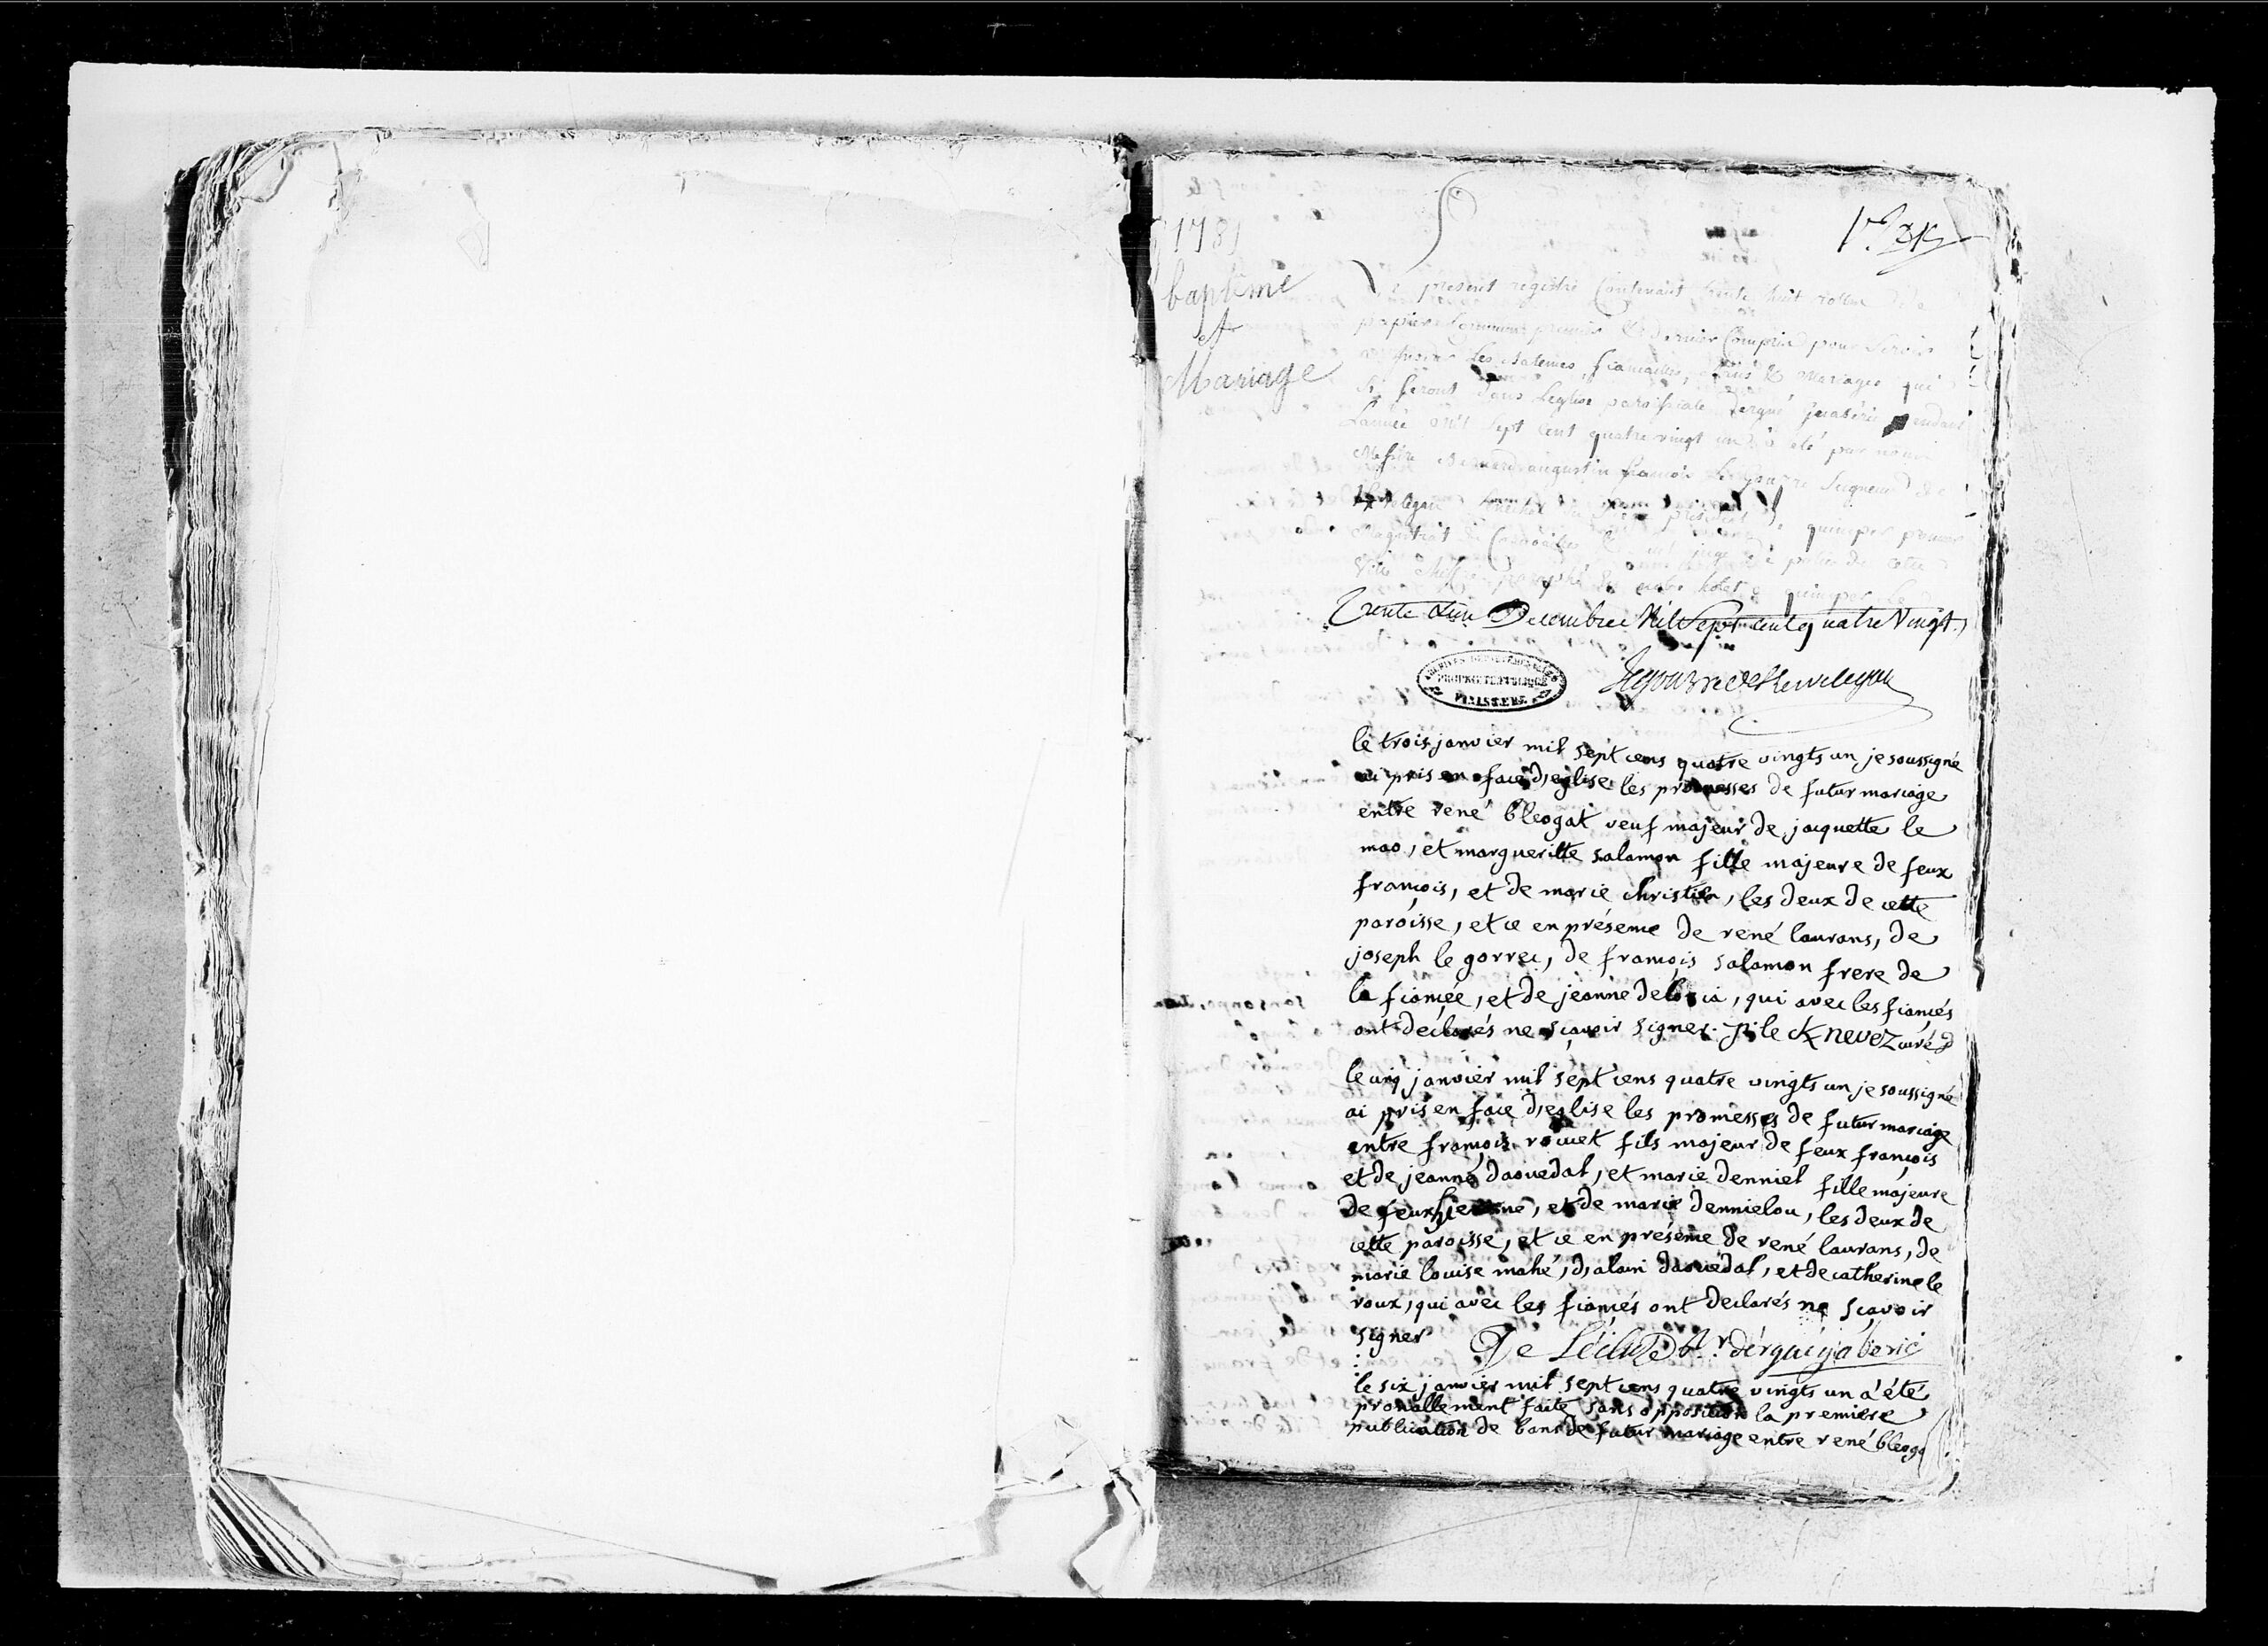 1781
baptême
et
Mariage
Le present registre Contenant trente huit rolles de
papier Commun premier & dernier Compris pour Servir
a Inserer Les Batemes, fiancailles, & Mariages qui
Se feront dans L'eglise paroissiale D'ergué gaberic pendant
L'année Mil Sept Cent quatre vingt un a été par nous
Messire Bernard augustin francois Legouzre Seigneur de
president quimper premier
Magistrat de Cornouaille juge police de cette
Ville Chiffré notre hotel a quimper Le
Trente & un Decembre Mil Sept cent quatre Vingt.
ARCHIVES DEPARTEMENTALES
PROPRIETE PUBLIQUE
FINISTERE
Legouzre de Kervelegan
le trois janvier mil sept cens quatre vingts un je soussigné
ai pris en face d'eglise les promesses de futur mariage
entre rené bleogat veuf majeur de jacquette le
mao, et margueritte salamon fille majeure de feux
françois, et de marie christien, les deux de cette
paroisse, et ce en présence de rené laurans, de
joseph le gorrec, de françois salamon frere de
la fiancée, et de jeanne, qui avec les fiancés
ont déclarés ne sçavoir signer. J: le Knevez curé
le cinq janvier mil sept cens quatre vingts un je soussigné
ai pris en face d'eglise les promesses de futur mariage
entre françois rouet fils majeur de feux françois
et de jeanne daouedal, et marie denniel fille majeure
de feux, et de marie dennielou, les deux de
cette paroisse, et ce en présence de rené laurans, de
marie louise mahé, d'alain daouédal, et de catherine le
roux, qui avec les fiancés ont declarés ne sçavoir
signer De Lécluze Rr. d'ergué gaberic
le six janvier mil sept cens quatre vingts un a été
pronallement faite sans opposition la premiere
publication de bans de futur mariage entre rené bleoga